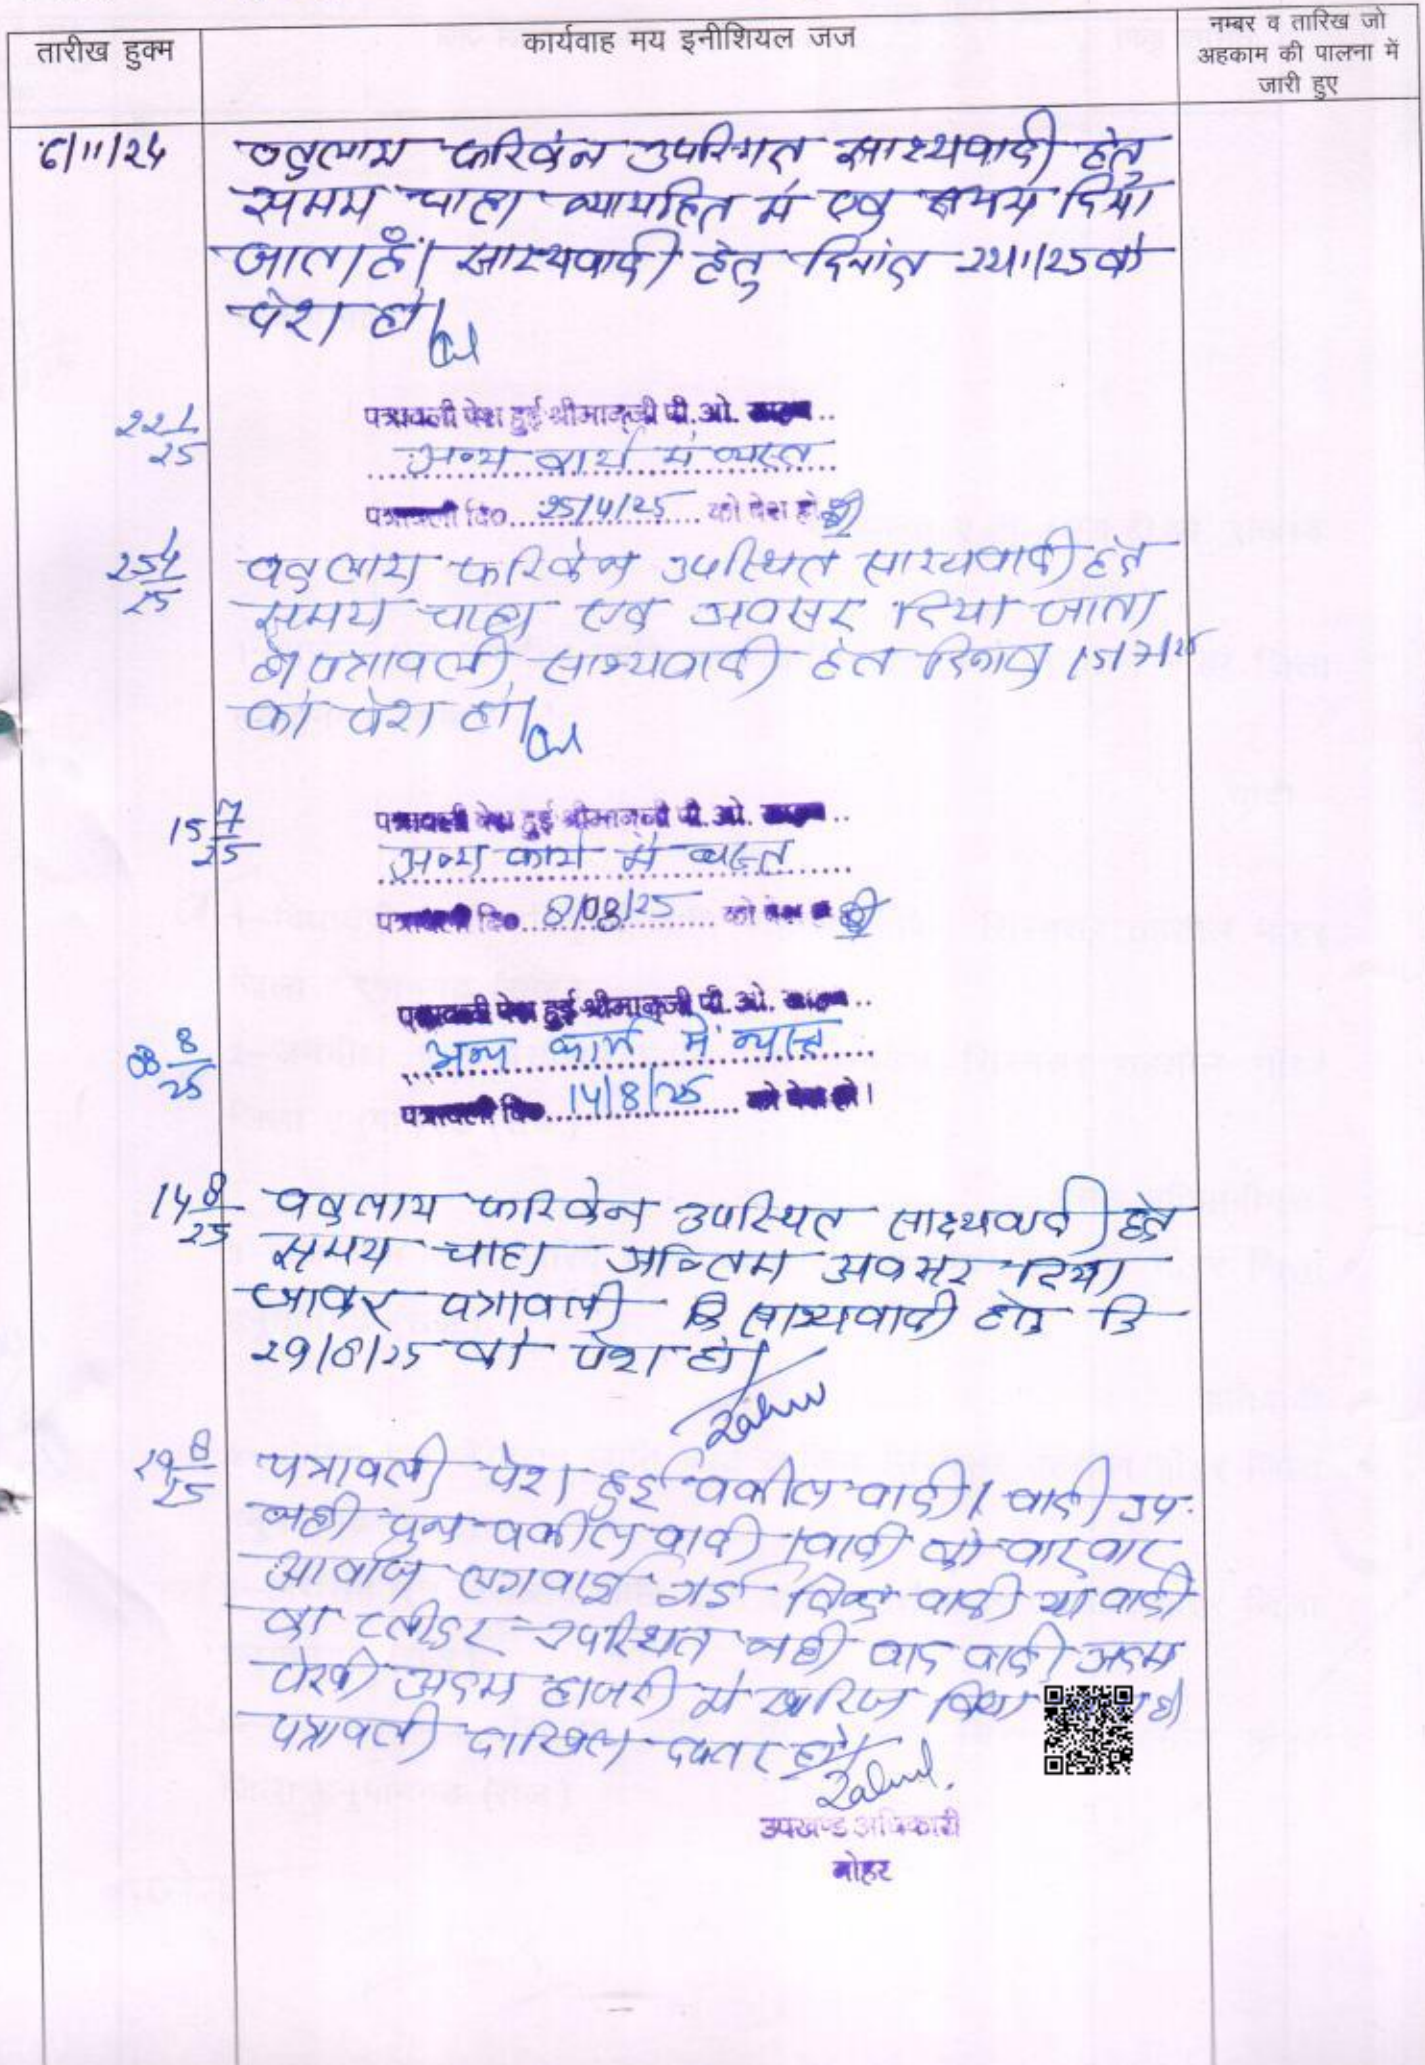 तारीख हुक्म
कार्यवाह मय इनीशियल जज
नम्बर व तारिख जो
अहकाम की पालना में
जारी हुए
6/11/24
वकुलाय फरिकेन उपस्थित साक्ष्यवादी हेतु
समय चाहा न्यायहित में एक समय दिया
जाता है। साक्ष्यवादी हेतु दिनांक 22/1/25 को
पेश हो।
22/1/25
पत्रावली पेश हुई श्रीमान्जी पी.ओ. साहब
अन्य कार्य में व्यस्त
पत्रावली दि० 25/4/25 को पेश हो
25/4/25
वकुलाय फरिकेन उपस्थित साक्ष्यवादी हेतु
समय चाहा एक अवसर दिया जाता
है। पत्रावली साक्ष्यवादी हेतु दिनांक 15/7/25
को पेश हो।
15/7/25
पत्रावली पेश हुई श्रीमान्जी पी.ओ. साहब
अन्य कार्य में व्यस्त
पत्रावली दि० 8/08/25 को पेश हो
08/8/25
पत्रावली पेश हुई श्रीमान्जी पी.ओ. साहब
अन्य कार्य में व्यस्त
पत्रावली दि० 14/8/25 को पेश हो।
14/8/25
वकुलाय फरिकेन उपस्थित साक्ष्यवादी हेतु
समय चाहा अन्तिम अवसर दिया
जाकर पत्रावली साक्ष्यवादी हेतु दि
29/8/25 को पेश हो।
29/8/25
पत्रावली पेश हुई वकील वादी / वादी उप.
नही पुन वकील वादी / वादी को बार बार
आवाज लगवाई गई किन्तु वादी या वादी
का प्लीडर उपस्थित नही वाद वादी अदम
पेरवी अदम हाजरी में खारिज किया
पत्रावली दाखिल दफ्तर हो।
उपखण्ड अधिकारी
नोहर